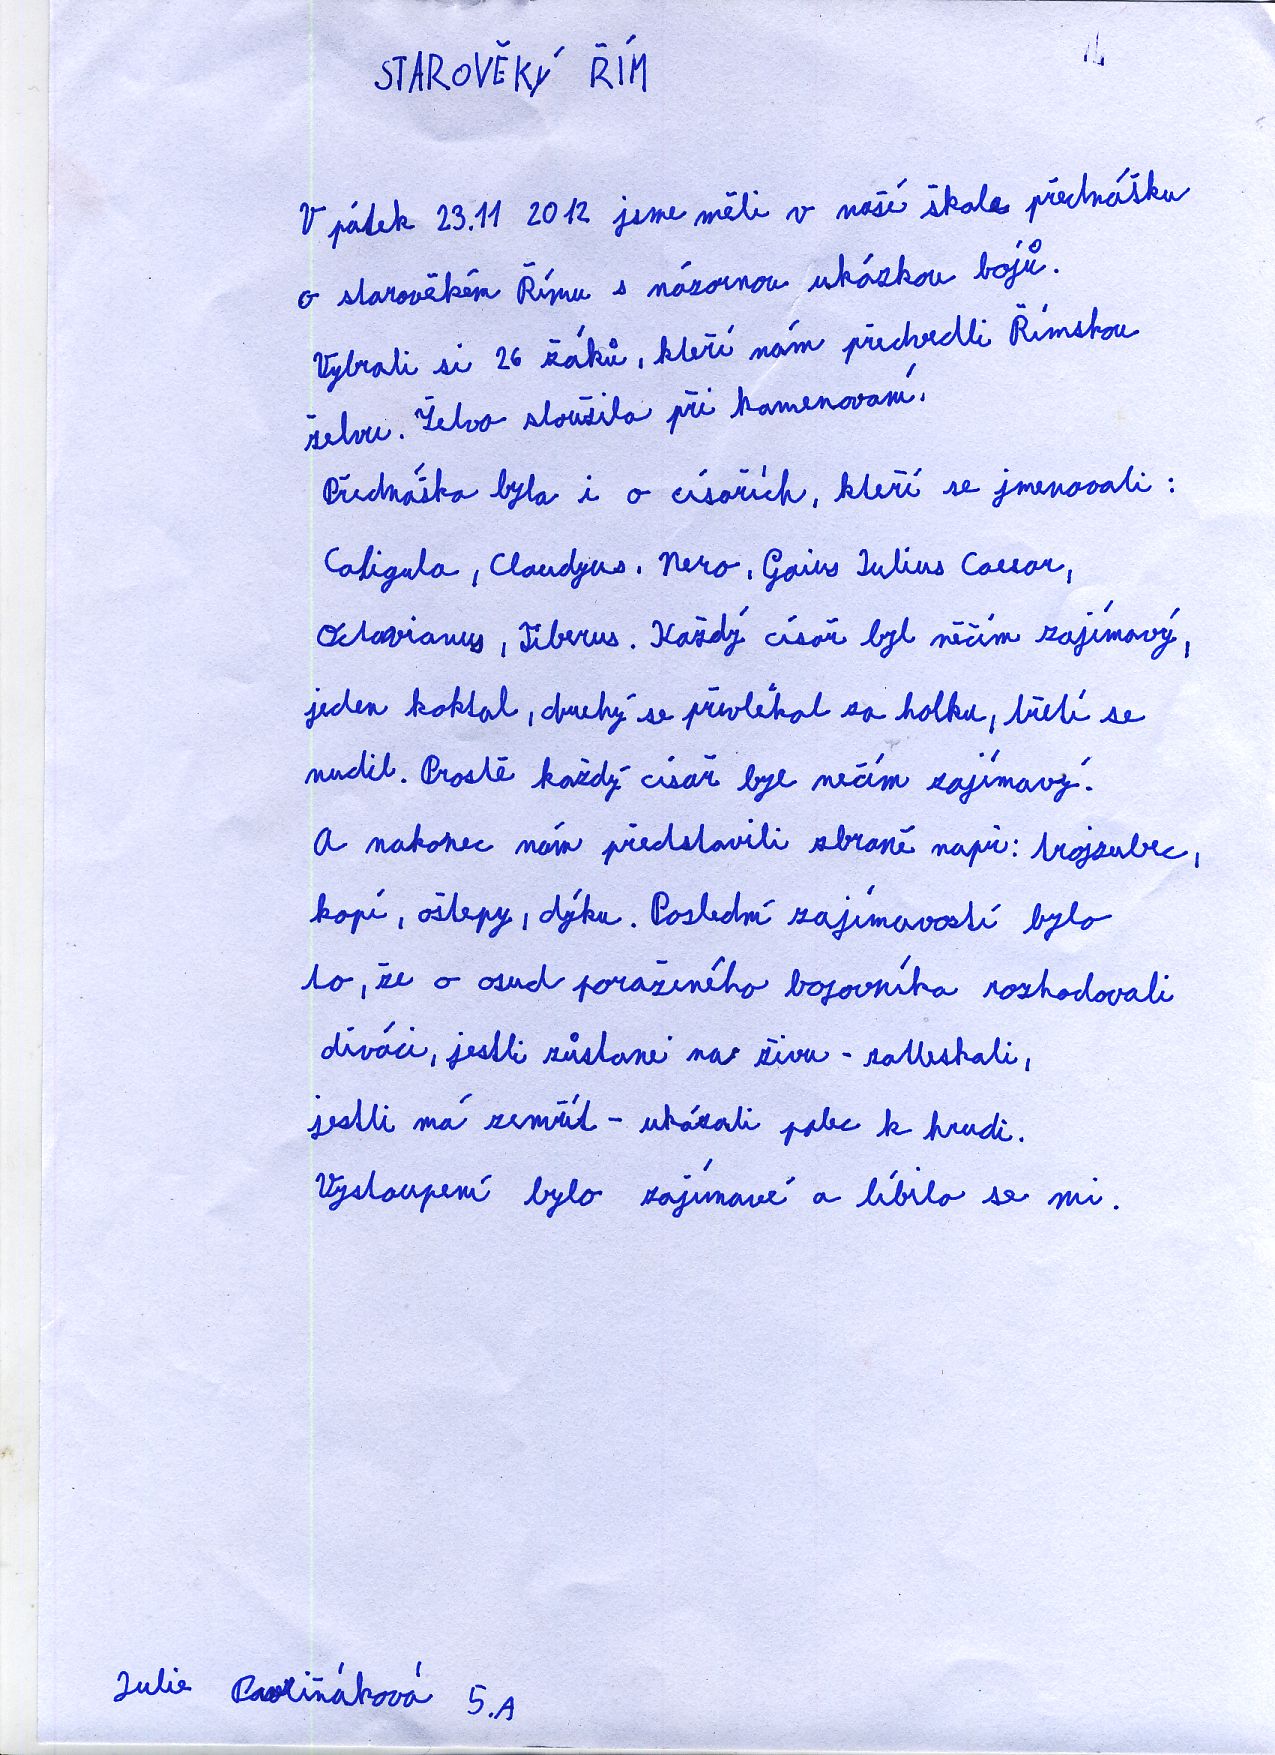 STAROVĚKÝ ŘÍM
V pátek 23.11 2012 jsme měli v naší škole přednášku
o starověkém Římu s názornou ukázkou bojů.
Vybrali si 26 žáků, kteří nám předvedli Římskou
želvu. Želva sloužila při kamenovaní.
Přednáška byla i o císařích, kteří se jmenovali:
Caligula, Claudyus. Nero, Gaius Iulius Caesar,
Octavianus, Tiberus. Každý císař byl něčím zajímavý,
jeden koktal, druhý se převlékal za holku, třetí se
nudil. Prostě každý císař byl nečím zajímavý.
A nakonec nám představili zbraně např: trojzubec,
kopí, oštepy, dýku. Poslední zajímavostí bylo
to, že o osud poraženého bojovníka rozhodovali
diváci, jestli zůstane na živu - zatleskali,
jestli má zemřít - ukázali palec k hrudi.
Vystoupení bylo zajímavé a líbilo se mi.
Julie 5.A